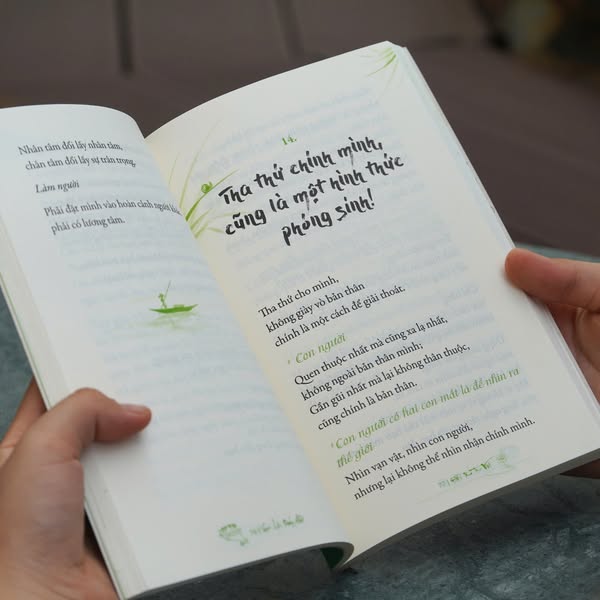 Nhân tâm đổi lấy nhân tâm,
chân tâm đổi lấy sự trân trọng.
Làm người
Phải đặt mình vào hoàn cảnh người
phải có lương tâm.
14.
Tha thứ chính mình,
cũng là một hình thức
phóng sinh!
Tha thứ cho mình,
không giày vò bản thân
chính là một cách để giải thoát.
* Con người
Quen thuộc nhất mà cũng xa lạ nhất,
không ngoài bản thân mình;
Gần gũi nhất mà lại không thân thuộc,
cũng chính là bản thân.
* Con người có hai con mắt là để nhìn ra
thế giới
Nhìn vạn vật, nhìn con người,
nhưng lại không thể nhìn nhận chính mình.